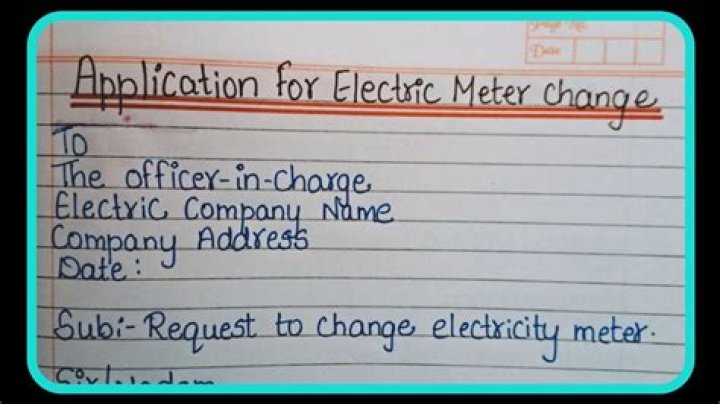 Page No.
Date
Application for Electric Meter change
To
The officer-in-charge
Electric Company Name
Company Address
Date :
Sub:- Request to change electricity meter.
Sir/Madam